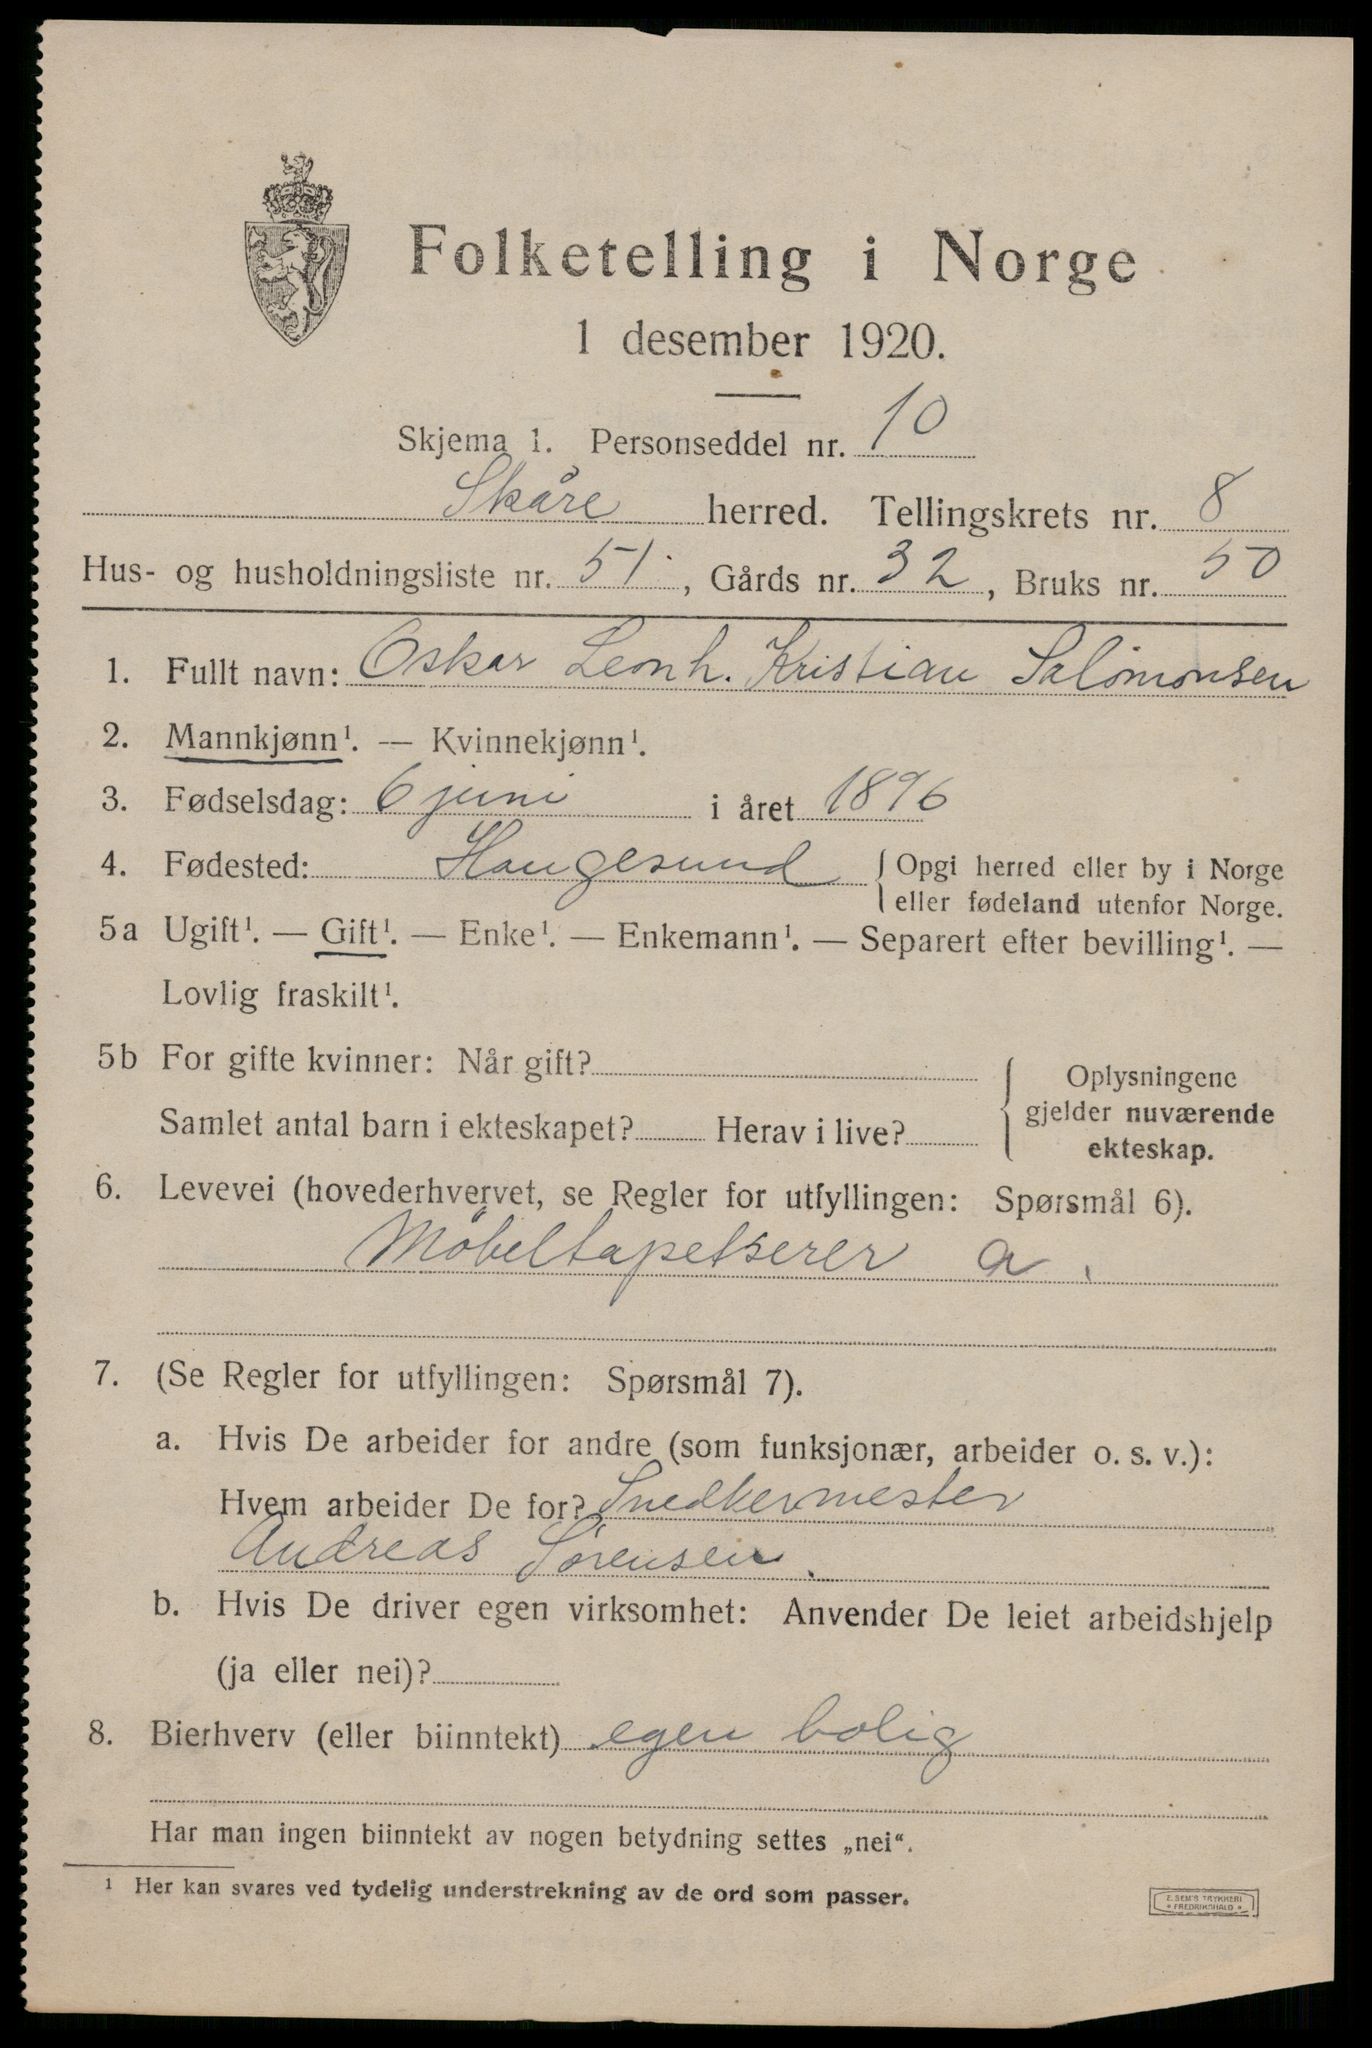 Folketelling i Norge
1 desember 1920.
Skjema 1. Personseddel nr. 10
Skåre herred. Tellingskrets nr. 8
Hus- og husholdningsliste nr. 51, Gårds nr. 32, Bruks nr. 50
1. Fullt navn: Oskar Leonh. Kristian Salomonsen
2. Mannkjønn¹. — Kvinnekjønn¹.
3. Fødselsdag: 6 juni i året 1896
4. Fødested: Haugesund { Opgi herred eller by i Norge
eller fødeland utenfor Norge.
5a Ugift¹. — Gift¹. — Enke¹. — Enkemann¹. — Separert efter bevilling¹. —
Lovlig fraskilt¹.
5b For gifte kvinner: Når gift?
Samlet antal barn i ekteskapet? Herav i live?
Oplysningene
gjelder nuværende
ekteskap.
6. Levevei (hovederhvervet, se Regler for utfyllingen: Spørsmål 6).
Møbeltapetserer a.
7. (Se Regler for utfyllingen: Spørsmål 7).
a. Hvis De arbeider for andre (som funksjonær, arbeider o. s. v.):
Hvem arbeider De for? Snedkermester
Andreas Sørensen.
b. Hvis De driver egen virksomhet: Anvender De leiet arbeidshjelp
(ja eller nei)?
8. Bierhverv (eller biinntekt) egen bolig
Har man ingen biinntekt av nogen betydning settes „nei“.
¹ Her kan svares ved tydelig understrekning av de ord som passer.
E. SEM'S TRYKKERI
* FREDRIKSHALD *